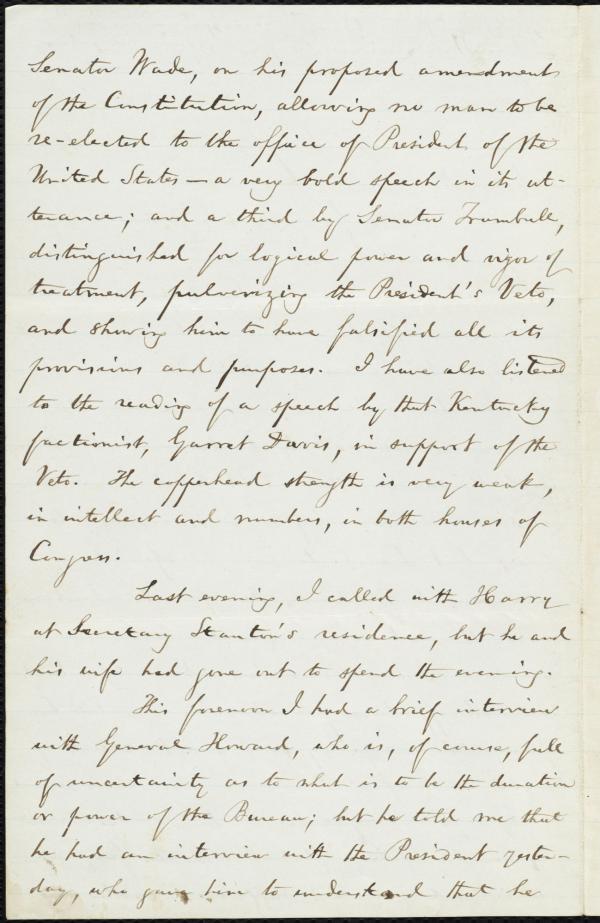 Senator Wade, on his proposed amendment
of the Constitution, allowing no man to be
re-elected to the office of President of the
United States — a very bold speech in its ut-
terance; and a third by Senator Trumbull,
distinguished for logical power and vigor of
treatment, pulverizing the President's Veto,
and showing him to have falsified all its
provisions and purposes. I have also listened
to the reading of a speech by that Kentucky
factionist, Garret Davis, in support of the
Veto. The copperhead strength is very weak,
in intellect and numbers, in both houses of
Congress.
Last evening, I called with Harry
at Secretary Stanton's residence, but he and
his wife had gone out to spend the evening.
This forenoon I had a brief interview
with General Howard, who is, of course, full
of uncertainty as to what is to be the duration
or power of the Bureau; but he told me that
he had an interview with the President yester-
day, who gave him to understand that he